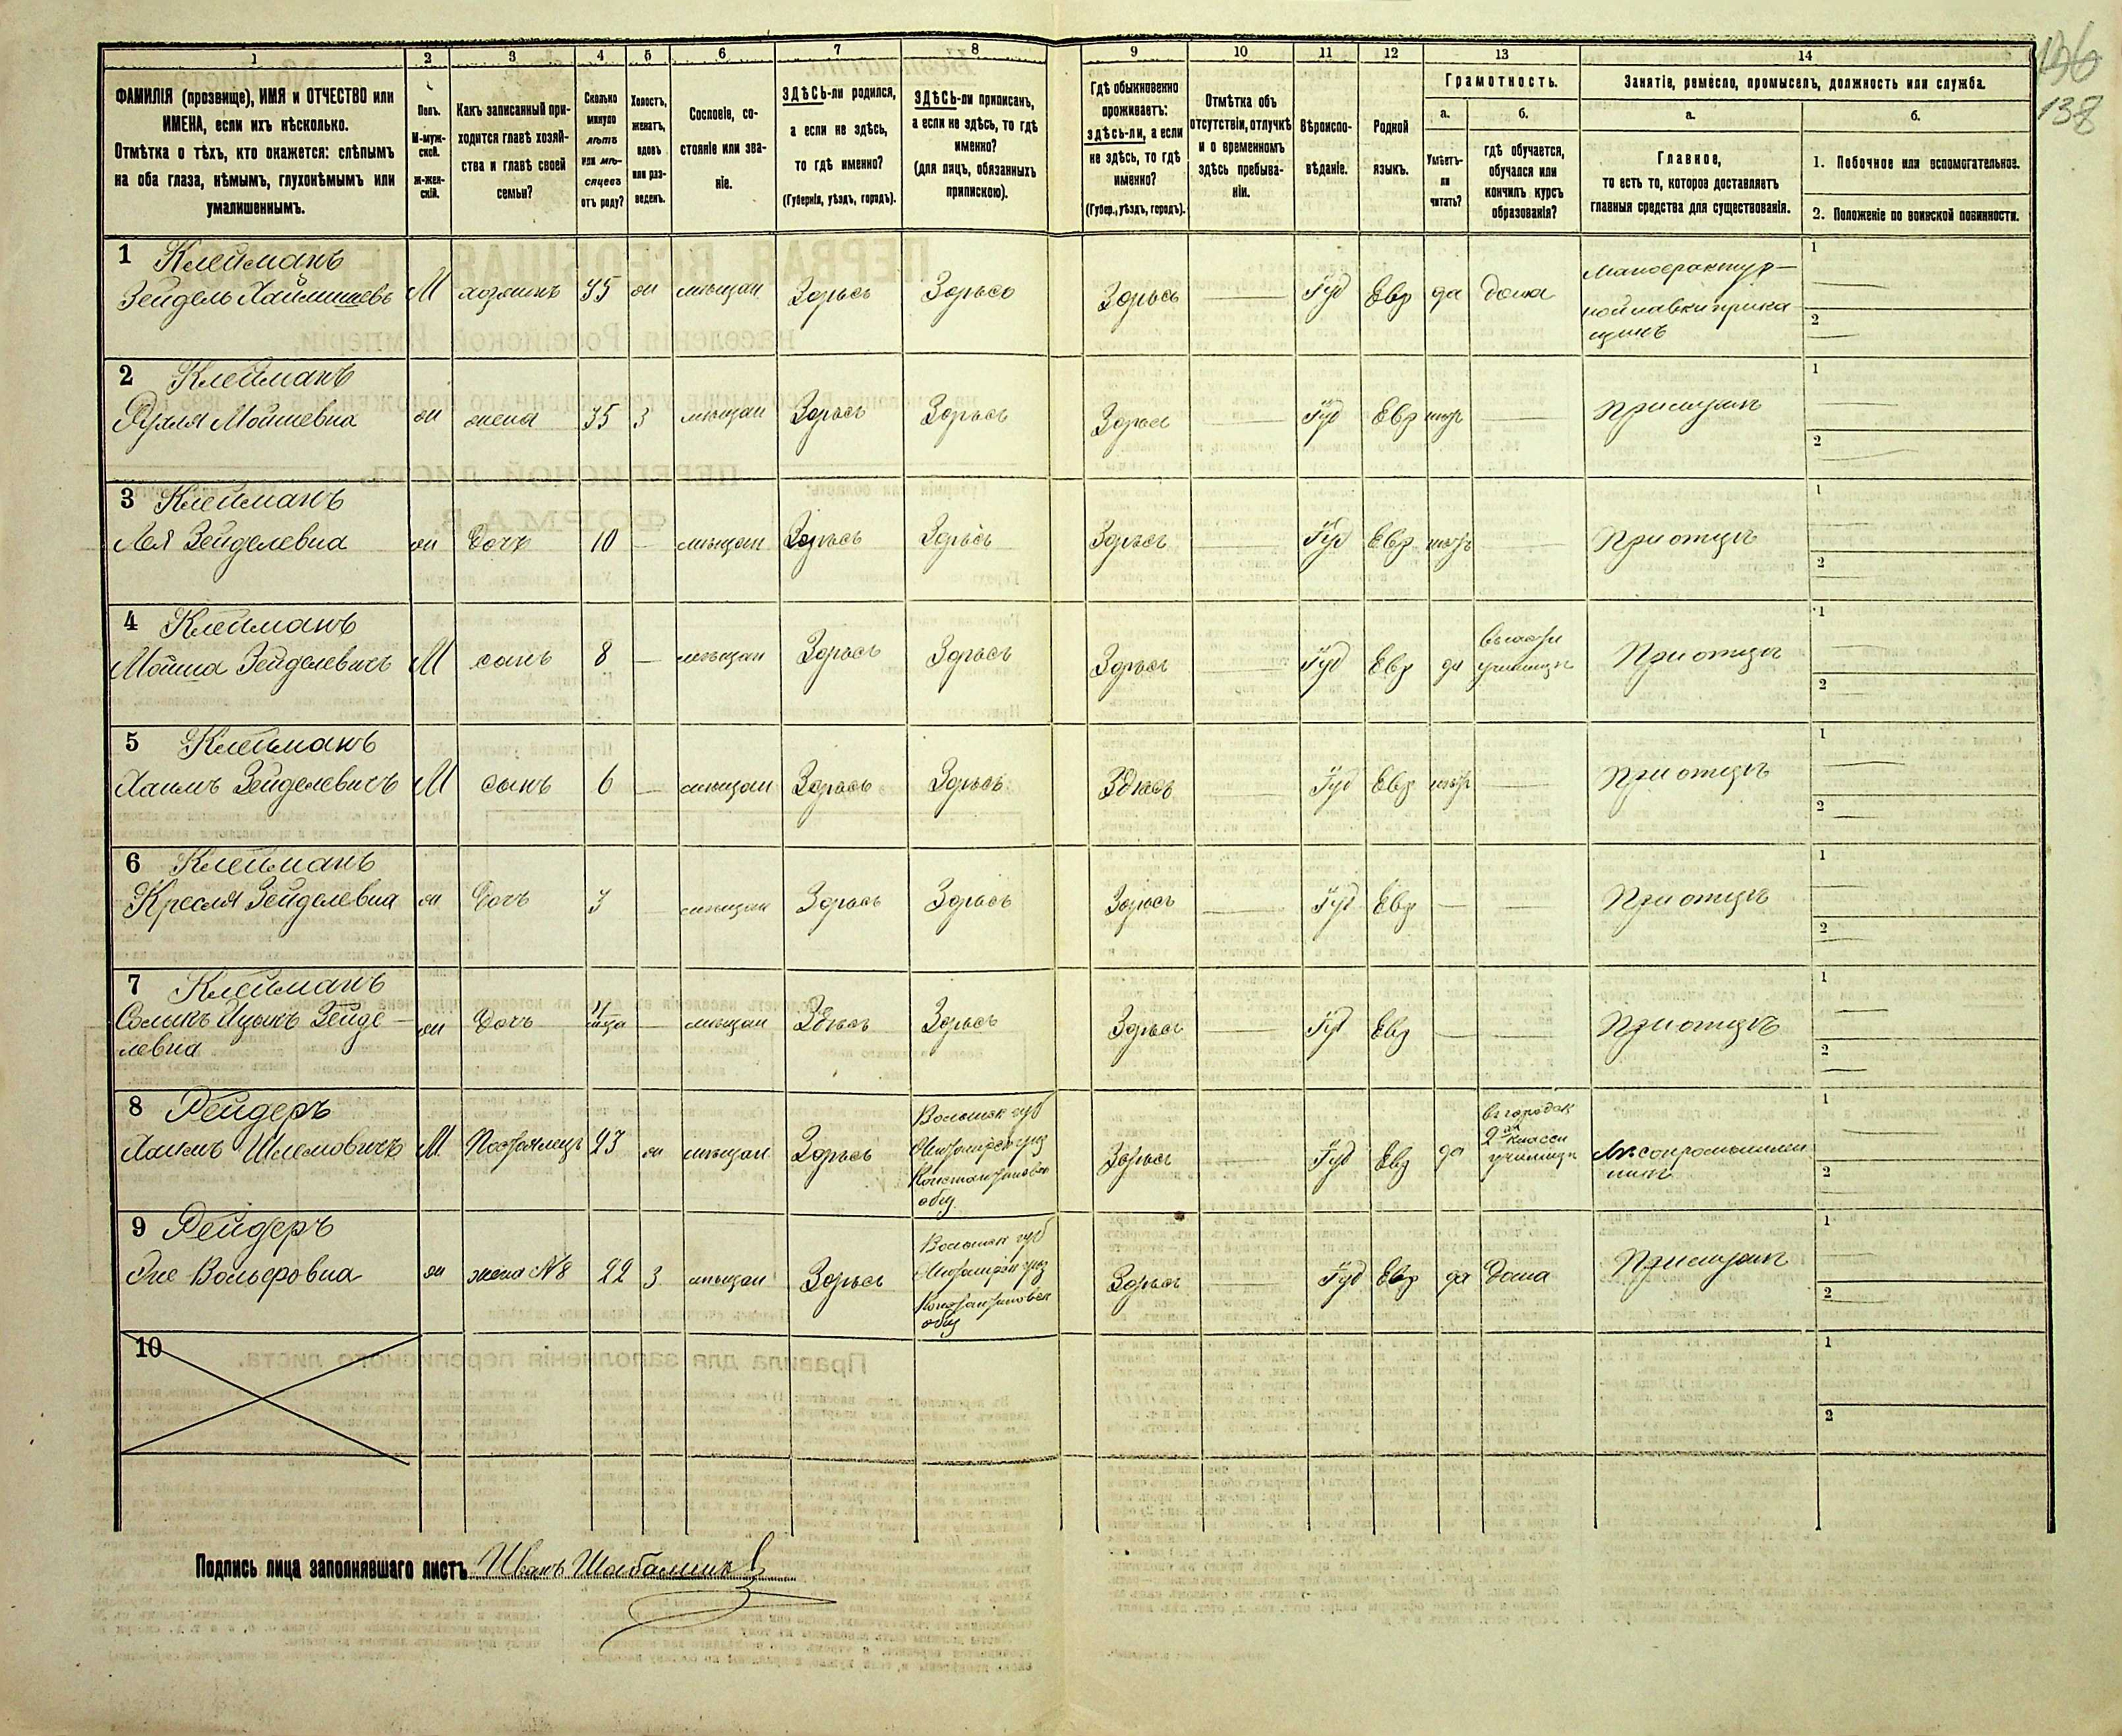 196
138
1
2
3
4
5
6
7
8
9
10
11
12
13
14
ФАМИЛІЯ (прозвище), ИМЯ и ОТЧЕСТВО или
ИМЕНА, если ихъ нѣсколько.
Отмѣтка о тѣхъ, кто окажется: слѣпымъ
на оба глаза, нѣмымъ, глухонѣмымъ или
умалишеннымъ.
Полъ.
М-муж-
ской.
ж-жен-
скій.
Какъ записанный при-
ходится главѣ хозяй-
ства и главѣ своей
семьи?
Сколько
минуло
лѣтъ
или мѣ-
сяцевъ
отъ роду?
Холостъ,
женатъ,
вдовъ
или раз-
веденъ.
Сословіе, со-
стояніе или зва-
ніе.
ЗДѢСЬ-ли родился,
а если не здѣсь,
то гдѣ именно?
(Губернія, уѣздъ, городъ).
ЗДѢСЬ-ли приписанъ,
а если не здѣсь, то гдѣ
именно?
(для лицъ, обязанныхъ
припискою).
Гдѣ обыкновенно
проживаетъ:
здѣсь-ли, а если
не здѣсь, то гдѣ
именно?
(Губер., уѣздъ, городъ).
Отмѣтка объ
отсутствіи, отлучкѣ
и о временномъ
здѣсь пребыва-
ніи.
Вѣроиспо-
вѣданіе.
Родной
языкъ.
Грамотность.
а.
б.
Умѣетъ-
ли
читать?
гдѣ обучается,
обучался или
кончилъ курсъ
образованія?
Занятіе, ремесло, промыселъ, должность или служба.
а.
б.
Главное,
то есть то, которое доставляетъ
главныя средства для существованія.
1. Побочное или вспомогательное.
2. Положеніе по воинской повинности.
1 Клейманъ
Зейдель Хаймшевъ М хозяинъ 35 мѣщан Здѣсь Здѣсь Здѣсь Іуд Евр да дома
мануфактур-
ной лавки прика
щикъ
1
2
2 Клейманъ
Рухля Мошневна жена 35 З мѣщан Здѣсь Здѣсь Здѣсь Іуд Евр нѣтъ При мужѣ
1
2
3 Клейманъ
Лея Зейделевна дочь 10 мѣщан Здѣсь Здѣсь Здѣсь Іуд Евр нѣтъ При отцѣ
1
2
4 Клейманъ
Мошка Зейделевичъ М сынъ 8 мѣщан Здѣсь Здѣсь Здѣсь Іуд Евр да
училищѣ
При отцѣ
1
2
5 Клейманъ
Хаимъ Зейделевичъ М сынъ 6 мѣщан Здѣсь Здѣсь Здѣсь Іуд Евр нѣтъ При отцѣ
1
2
6 Клейманъ
Кресля Зейделевна дочь 3 мѣщан Здѣсь Здѣсь Здѣсь Іуд Евр При отцѣ
1
2
7 Клейманъ
Зейде-
левна дочь мѣщан Здѣсь Здѣсь Здѣсь Іуд Евр При отцѣ
1
2
8 Рейдеръ
Хаимъ Шлемовичъ М Постоялецъ 23 мѣщан Здѣсь
Волынск губ
Житомірск уѣз
Константиновск
общ.
Здѣсь Іуд Евр да
въ городск
2х класси
училищѣ
Лѣсопромышлен
никъ
1
2
9 Рейдеръ
Эне Вольфовна жена №8 22 З мѣщан Здѣсь
Волынск губ
Житомірск уѣз
Константиновск
общ
Здѣсь Іуд Евр да дома При мужѣ
1
2
10
1
2
Подпись лица заполнявшаго листъ Иванъ Шабалинъ